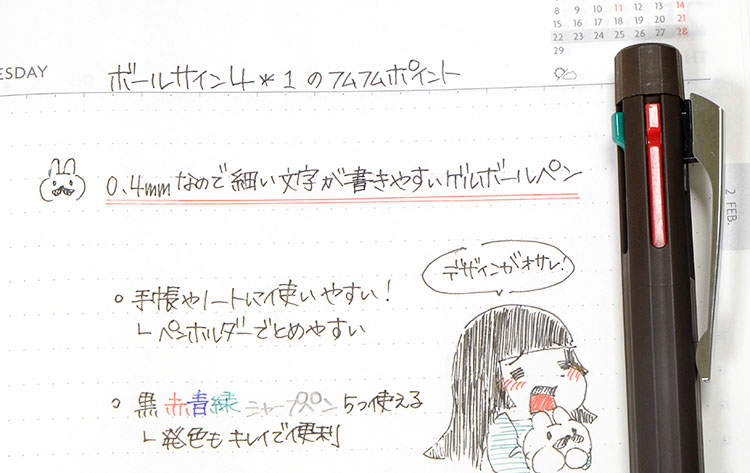 8 9 10 11 12 13 14
15 16 17 18 19 20 21
22 23 24 25 26 27 28
29
ESDAY
ボールサイン4*1のフムフムポイント
0.4mmなので細い文字が書きやすいゲルボールペン
2 FEB.
デザインがオサレ!
手帳やノートに使いやすい!
ペンホルダーでとめやすい
黒 赤 青 緑 シャープペン 5つ使える
発色もキレイで便利